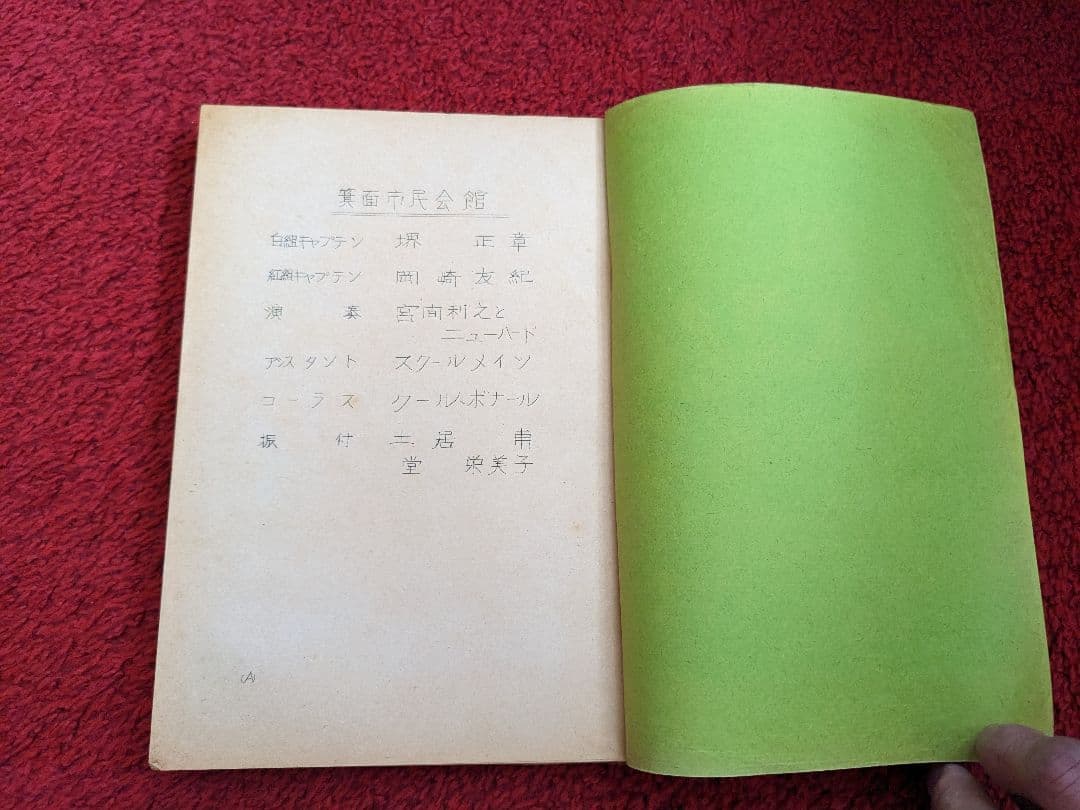 箕面市民会館
白組キャプテン 堺 正章
紅組キャプテン 岡崎友紀
演奏 宮間利之と
ニューハード
アシスタント スクールメイツ
コーラス クール・ボナール
振付 土居甫
堂 栄美子
(A)